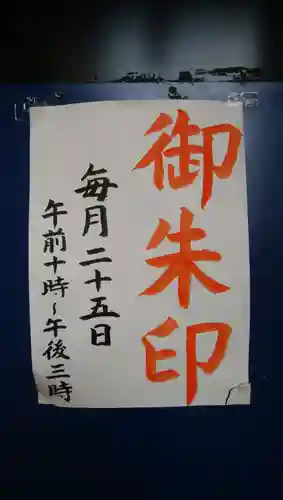 御朱印
毎月二十五日
午前十時〜午後三時